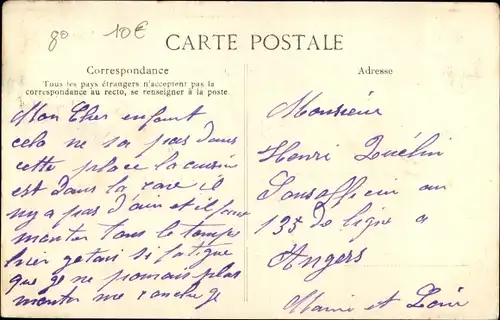 80 10€
CARTE POSTALE
Correspondance
Tous les pays étrangers n'acceptent pas la
correspondance au recto, se renseigner à la poste
Mon Cher enfant
cela ne pas dans
cette place la cuisine
est dans la cave il
ny a pas d'air et il faux
monter tous le temps
hier getais si fatigue
que je ne pouvais plus
monter me couche je
Adresse
Monsieur
Henri
Sousofficier au
135 de ligne a
Angers
Maine et Loire